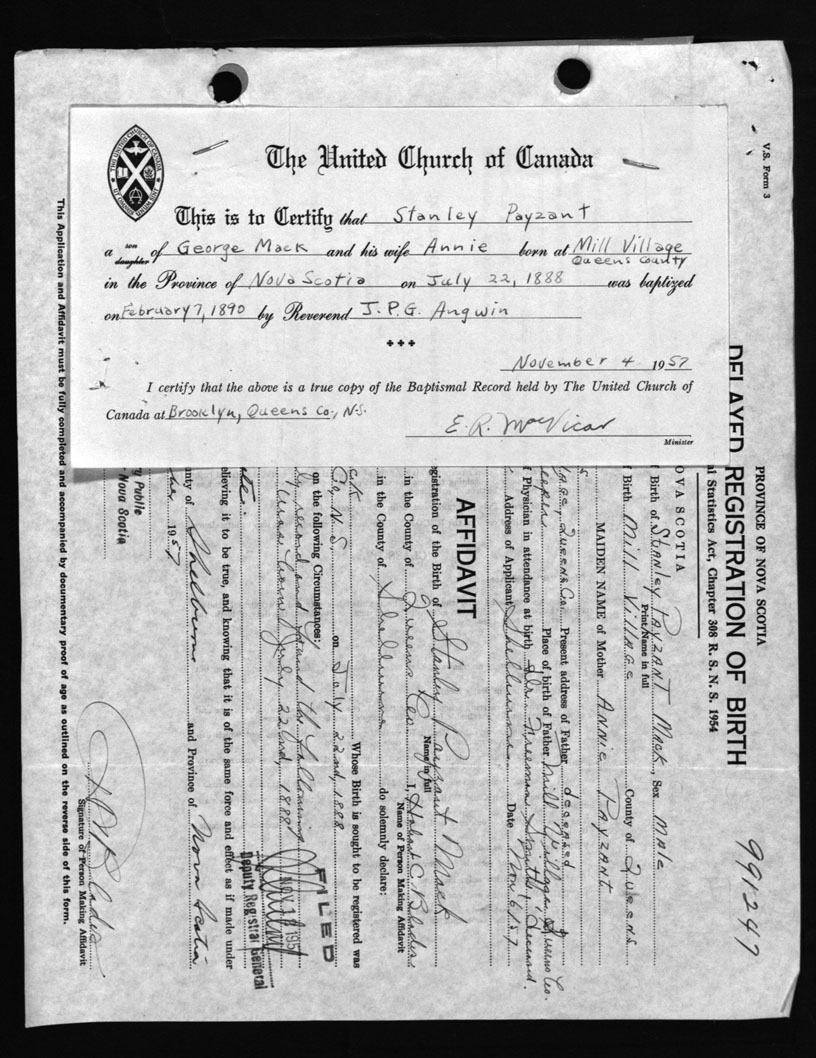 The United Church of Canada
This is to Certify that Stanley Payzant
a son daughter of George Mack and his wife Annie born at Mill Village
Queens County
in the Province of Nova Scotia on July 22, 1888 was baptized
on February 7, 1890 by Reverend J.P.G. Angwin
November 4 1957
I certify that the above is a true copy of the Baptismal Record held by The United Church of
Canada at Brooklyn, Queens Co., N.S.
E. R. MacVicar
Minister
V.S. Form 3
991247
PROVINCE OF NOVA SCOTIA
DELAYED REGISTRATION OF BIRTH
al Statistics Act, Chapter 308 R. S. N. S. 1954
OVA SCOTIA
Birth of Stanley Payzant Mack, Sex Male
Print Name in full
f Birth Mill Village County of Queens
MAIDEN NAME of Mother Annie Payzant
Queens Co. Present address of Father deceased
Place of birth of Father Mill Village, Queens Co.
f Physician in attendance at birth Dr. Freeman Smith, deceased.
Address of Applicant Shelburne Date Nov 6/57
AFFIDAVIT
gistration of the Birth of Stanley Payzant Mack
Name in full
in the County of Queens Co I,
Name of Person Making Affidavit
in the County of Shelburne do solemnly declare:
Whose Birth is sought to be registered was
Co, N.S. on July 22nd, 1888
on the following Circumstances:
record and found the following
July 22nd, 1888
FILED
NOV 1 195
Deputy Registrar General
elieving it to be true, and knowing that it is of the same force and effect as if made under
nty of Shelburne and Province of Nova Scotia
1957
y Public
Nova Scotia
Signature of Person Making Affidavit
This Application and Affidavit must be fully completed and accompanied by documentary proof of age as outlined on the reverse side of this form.